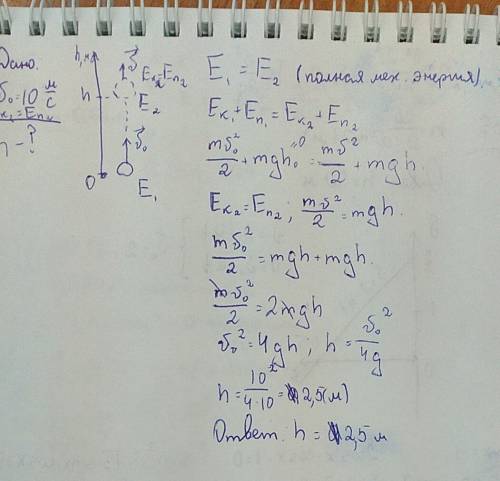 Дано.
v₀=10 м/с
Eк₂=Eп₂
h - ?
h, м
v⃗
Eк₂=Eп₂
h
E₂
v⃗₀
0
E₁
E₁ = E₂ (полная мех. энергия)
Eк₁+Eп₁=Eк₂+Eп₂
mv₀²/2 + mgh₀ = mv²/2 + mgh.
=0
Eк₂=Eп₂; mv²/2 = mgh.
mv₀²/2 = mgh + mgh.
mv₀²/2 = 2mgh
v₀² = 4gh; h = v₀²/4g
h = 10²/4·10 = 2,5(м)
Ответ: h = 2,5 м